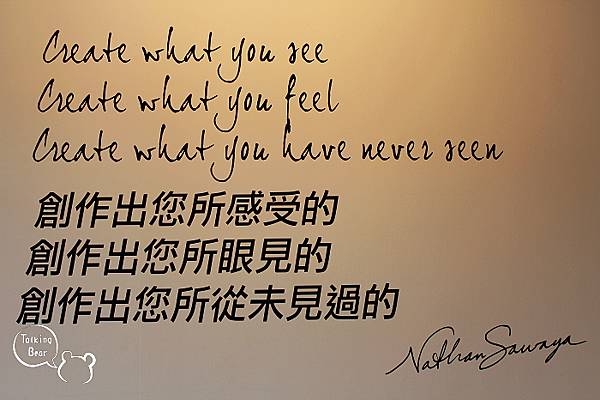 Create what you see
Create what you feel
Create what you have never seen
創作出您所感受的
創作出您所眼見的
創作出您所從未見過的
Talking
Bear
Nathan Sawaya